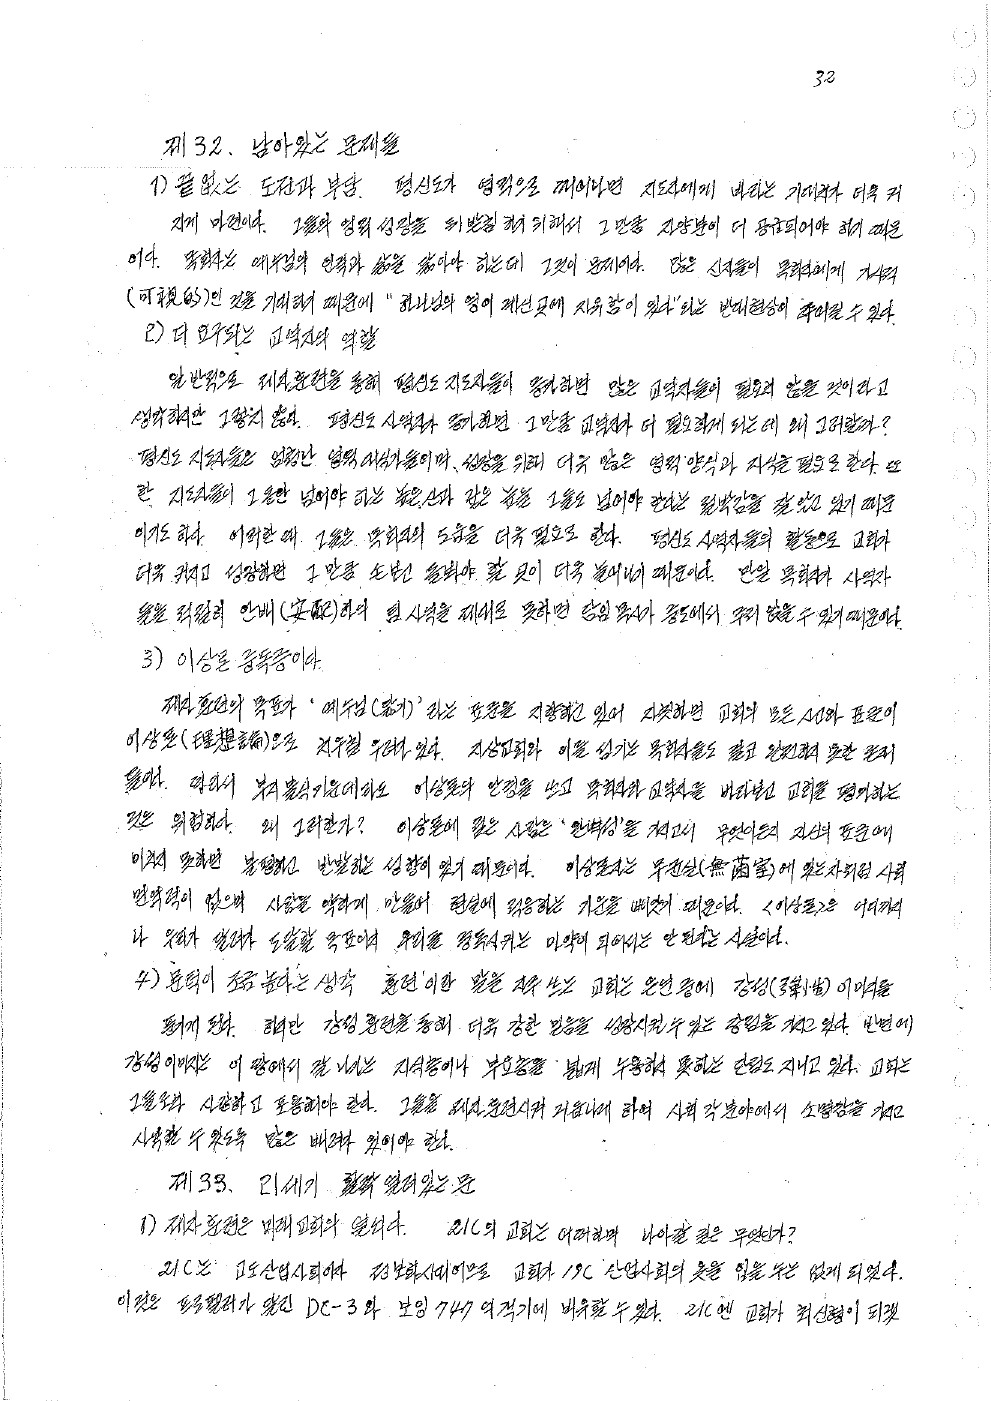 32
제32. 남아있는 문제들
1) 끝없는 도전과 부담. 평신도가 영적으로 깨어나면 지도자에게 바라는 기대치가 더욱 커
지게 마련이다. 그들의 영적 성장을 뒷받침 하기 위해서 그만큼 자양분이 더 공급되어야 하기 때문
이다. 목회자는 예수님의 인격과 삶을 닮아야 하는데 그것이 문제이다. 많은 신자들이 목회자에게 가시적
(可視的)인 것을 기대하기 때문에 "하나님의 영이 계신곳에 자유함이 있다"라는 반대현상이 수 있다.
2) 더 요구되는 교역자의 역할
일반적으로 제자훈련을 통해 평신도 지도자들이 증가하면 많은 교역자들이 필요치 않을 것이라고
생각하지만 그렇지 않다. 평신도 사역자가 증가하면 그만큼 교역자가 더 필요하게 되는데 왜 그러할까?
평신도 지도자들은 엄청난 영적 대식가들이며, 성장을 위해 더욱 많은 영적 양식과 지식을 필요로 한다. 또
한 지도자들이 그동안 넘어야 하는 높은산과 깊은 늪을 그들도 넘어야 한다는 절박감을 잘 알고 있기 때문
이기도 하다. 이러한 때 그들은 목회자의 도움을 더욱 필요로 한다. 평신도 사역자들의 활동으로 교회가
더욱 커지고 성장하면 그만큼 손보고 돌봐야 할 것이 더욱 늘어나기 때문이다. 만일 목회자가 사역자
들을 적절히 안배(安配)하여 팀 사역을 제대로 못하면 담임 목사가 중도에서 수 있기 때문이다.
3) 이상론 중독증이다.
제자훈련의 목표가 '예수님(닮기)'라는 표준을 지향하고 있어 자칫하면 교회의 모든 시선과 표준이
이상론(理想論)으로 치우칠 우려가 있다. 지상교회와 이를 섬기는 목회자들도 결코 완전하지 못한 존재
들이다. 따라서 부지불식가운데라도 이상론의 안경을 쓰고 목회자와 교역자를 바라보고 교회를 평가하는
것은 위험하다. 왜 그러한가? 이상론에 젖은 사람은 '완벽성'을 가지고서 무엇이든지 자신의 표준에
이르지 못하면 불평하고 반발하는 성향이 있기 때문이다. 이상론자는 무균실(無菌室)에 있는자처럼 사회
면역력이 없으며 사람을 약하게 만들어 현실에 적응하는 기운을 빼앗기 때문이다. <이상론>은 어디까지
나 우리가 달려가 도달할 목표이지 우리를 중독시키는 마약이 되어서는 안 된다는 사실이다.
4) 문턱이 조금 높다는 생각 훈련'이란 말을 자주 쓰는 교회는 은연 중에 강성(强性) 이미지를
풍기게 된다. 하지만 강성 훈련을 통해 더욱 강한 믿음을 성장시킬 수 있는 장점을 가지고 있다. 반면에
강성이미지는 이 땅에서 잘 나가는 지식층이나 부요층을 쉽게 수용하지 못하는 단점도 지니고 있다. 교회는
그들도 사랑하고 포용해야 한다. 그들을 제자훈련시켜 거듭나게 하여 사회 각 분야에서 소명감을 가지고
사역할 수 있도록 많은 배려가 있어야 한다.
제33. 21세기 활짝 열려있는 문
1) 제자훈련은 미래교회의 열쇠다. 21C의 교회는 어떠하며 나아갈 길은 무엇인가?
21C는 고도산업사회이자 정보화시대이므로 교회가 19C 산업사회의 옷을 입을 수는 없게 되었다.
이것은 프로펠러가 달린 DC-3와 보잉 747 여객기에 비유할 수 있다. 21C엔 교회가 최신형이 되것